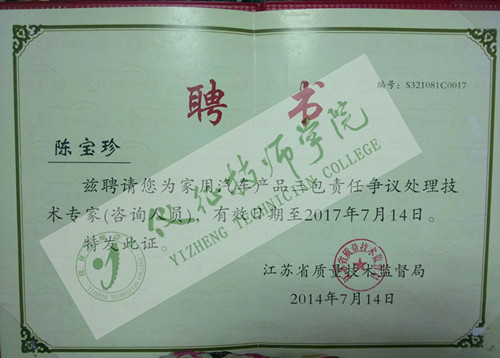 编号：S321081C0017
聘书
陈宝珍
兹聘请您为家用汽车产品三包责任争议处理技
术专家(咨询人员)，有效日期至2017年7月14日。
特发此证。
江苏省质量技术监督局
2014年7月14日
仪征技师学院
YIZHENG TECHNICIAN COLLEGE